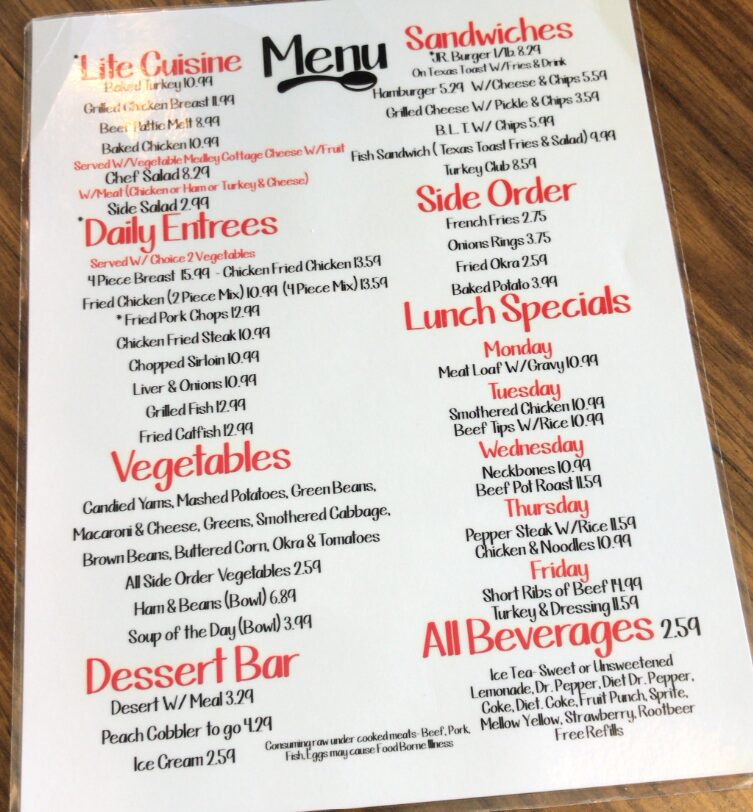 Menu
*Lite Cuisine
Baked Turkey 10.99
Grilled Chicken Breast 11.99
Beef Pattie Melt 8.99
Baked Chicken 10.99
Served W/Vegetable Medley Cottage Cheese W/Fruit
Chef Salad 8.29
W/Meat (Chicken or Ham or Turkey & Cheese)
Side Salad 2.99
*Daily Entrees
Served W/ Choice 2 Vegetables
4 Piece Breast 15.99 - Chicken Fried Chicken 13.59
Fried Chicken (2 Piece Mix) 10.99 (4 Piece Mix) 13.59
*Fried Pork Chops 12.99
Chicken Fried Steak 10.99
Chopped Sirloin 10.99
Liver & Onions 10.99
Grilled Fish 12.99
Fried Catfish 12.99
Vegetables
Candied Yams, Mashed Potatoes, Green Beans,
Macaroni & Cheese, Greens, Smothered Cabbage,
Brown Beans, Buttered Corn, Okra & Tomatoes
All Side Order Vegetables 2.59
Ham & Beans (Bowl) 6.89
Soup of the Day (Bowl) 3.99
Dessert Bar
Desert W/ Meal 3.29
Peach Cobbler to go 4.29
Ice Cream 2.59
Sandwiches
*JR. Burger 1/lb. 8.29
On Texas Toast W/Fries & Drink
Hamburger 5.29 W/Cheese & Chips 5.59
Grilled Cheese W/ Pickle & Chips 3.59
B.L.T. W/ Chips 5.99
Fish Sandwich (Texas Toast Fries & Salad) 9.99
Turkey Club 8.59
Side Order
French Fries 2.75
Onions Rings 3.75
Fried Okra 2.59
Baked Potato 3.99
Lunch Specials
Monday
Meat Loaf W/Gravy 10.99
Tuesday
Smothered Chicken 10.99
Beef Tips W/Rice 10.99
Wednesday
Neckbones 10.99
Beef Pot Roast 11.59
Thursday
Pepper Steak W/Rice 11.59
Chicken & Noodles 10.99
Friday
Short Ribs of Beef 14.99
Turkey & Dressing 11.59
All Beverages 2.59
Ice Tea- Sweet or Unsweetened
Lemonade, Dr. Pepper, Diet Dr. Pepper,
Coke, Diet. Coke, Fruit Punch, Sprite,
Mellow Yellow, Strawberry, Rootbeer
Free Refills
Consuming raw under cooked meats- Beef, Pork,
Fish, Eggs may cause Food Borne Illness